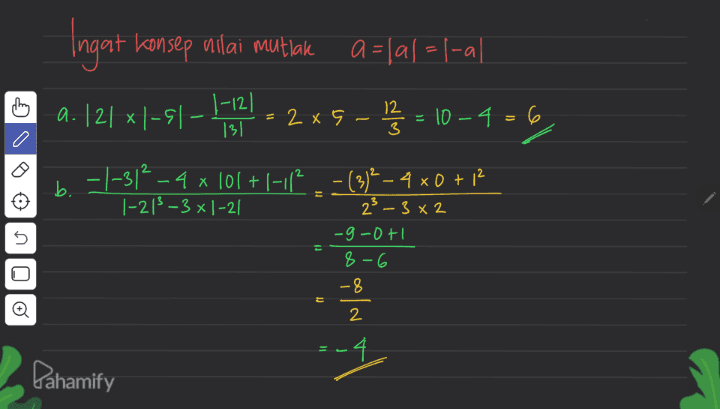 Ingat konsep nilai mutlak a = |a| = |-a|
a. |2| x |-5| - |-12|/|3| = 2 x 5 - 12/3 = 10 - 4 = 6
b. (-|-3|² - 4 x |0| + |-1|²)/(|-2|³ - 3 x |-2|) = (-(3)² - 4 x 0 + 1²)/(2³ - 3 x 2)
= (-9 - 0 + 1)/(8 - 6)
= -8/2
= -4
Pahamify